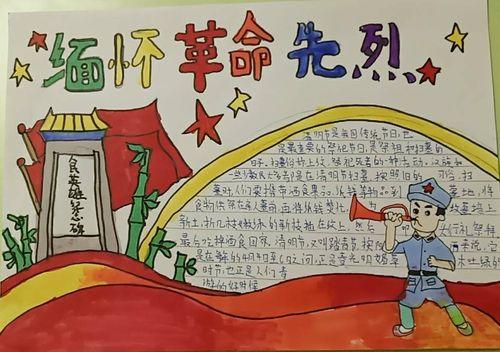 缅怀革命先烈
人民英雄纪念碑
清明节是我国传统节日,也
是最重要的祭祀节日,是祭祖和扫墓的
日子。扫墓俗称上坟,祭祀死者的一种活动。汉族和
一些少数民族大多都是在清明节扫墓。按照旧的习俗,扫
墓时,人们要携带酒食果品、纸钱等物品到墓地,将
食物供祭在亲人墓前,再将纸钱焚化,为坟墓培上
新土,折几枝嫩绿的新枝插在坟上,然后叩头行礼祭拜,
最后吃掉酒食回家。清明节,又叫踏青节,按阳历来说,它
是在每年的4月4日至6日之间,正是春光明媚草木吐绿的
时节,也正是人们春
游的好时候